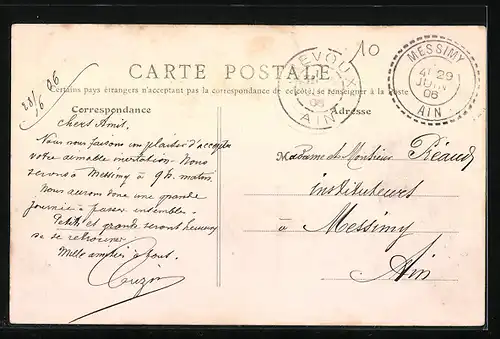 10
CARTE POSTALE
Certains pays étrangers n'acceptant pas la correspondance de ce côté, se renseigner à la Poste
TREVOUX
06
AIN
MESSIMY
4E 29
JUIN
06
AIN
28/6 06
Correspondance
Adresse
Chers Amis.
Nous nous faisons un plaisir d'accepter
votre aimable invitation - Nous
serons à Messimy à 9h. matin.
Nous aurons donc une grande
journée à passer ensemble -
Petits et grands seront heureux
de se retrouver
Mille amitiés à tout.
Cuzin
Madame et Monsieur Réaud
instituteurs
à Messimy
Ain